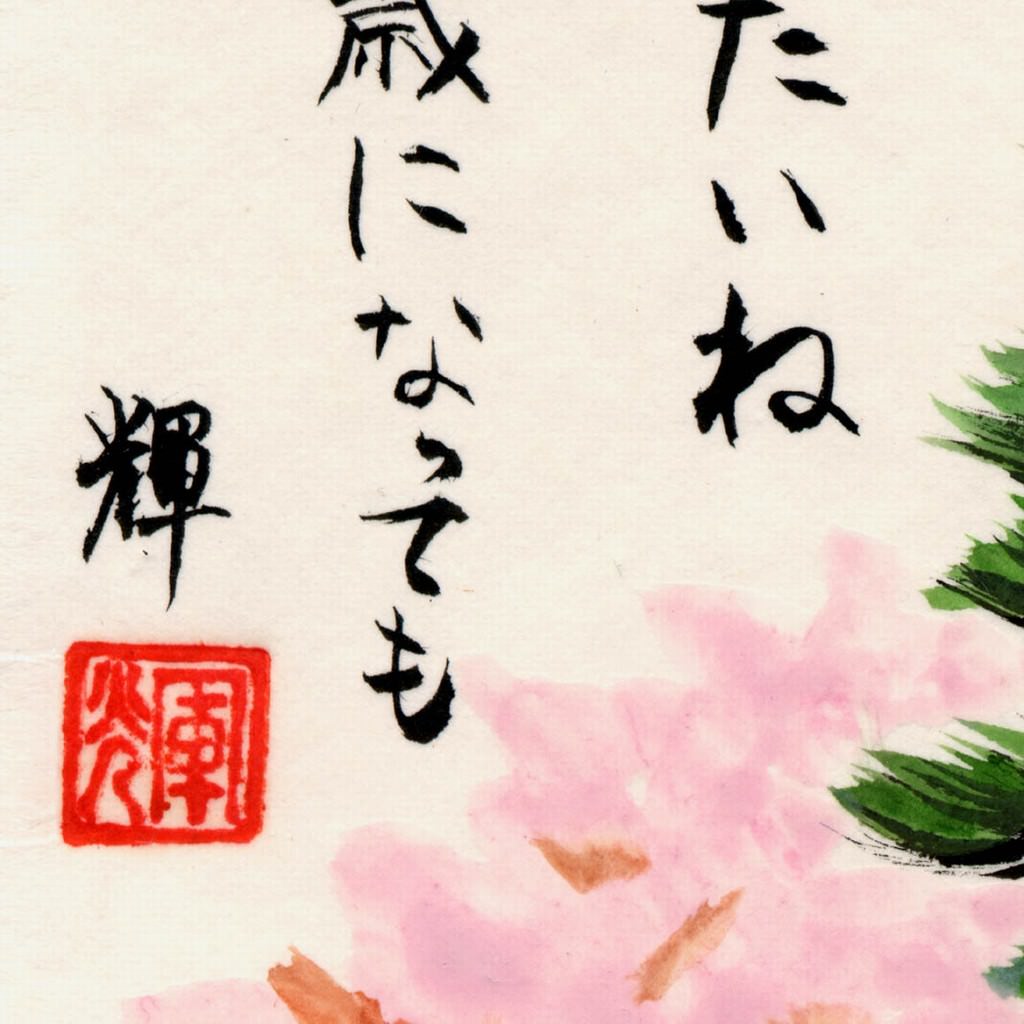 たいね
歳になっても
輝
輝